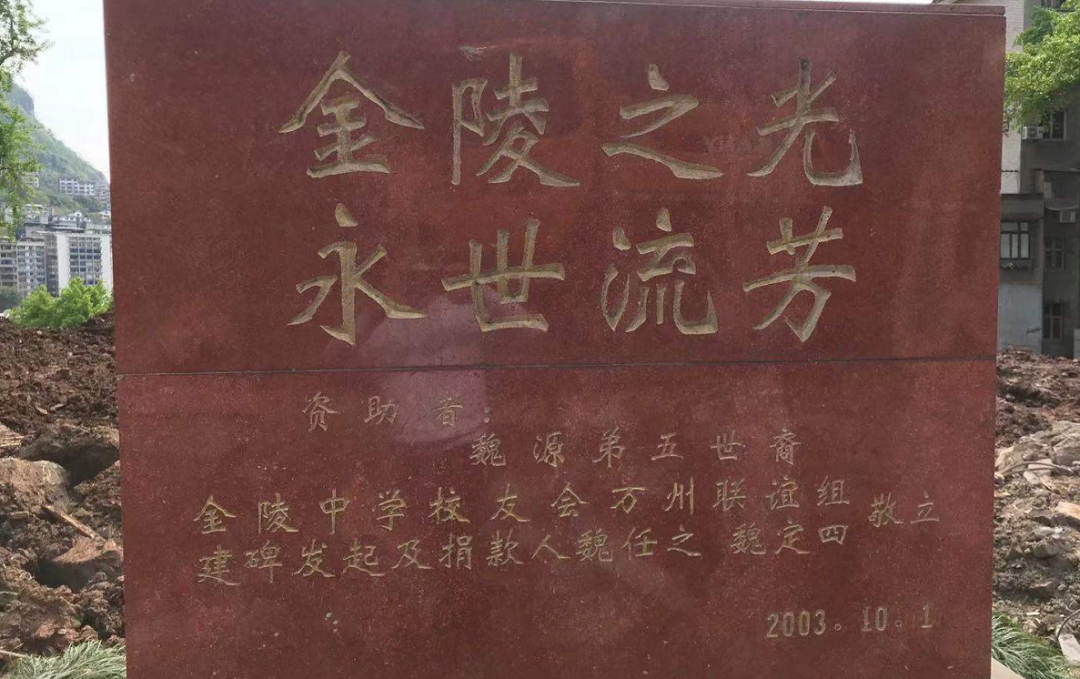 金陵之光
永世流芳
资助者：
魏源第五世裔
金陵中学校友会万州联谊组
建碑发起及捐款人魏任之 魏定四
敬立
2003.10.1